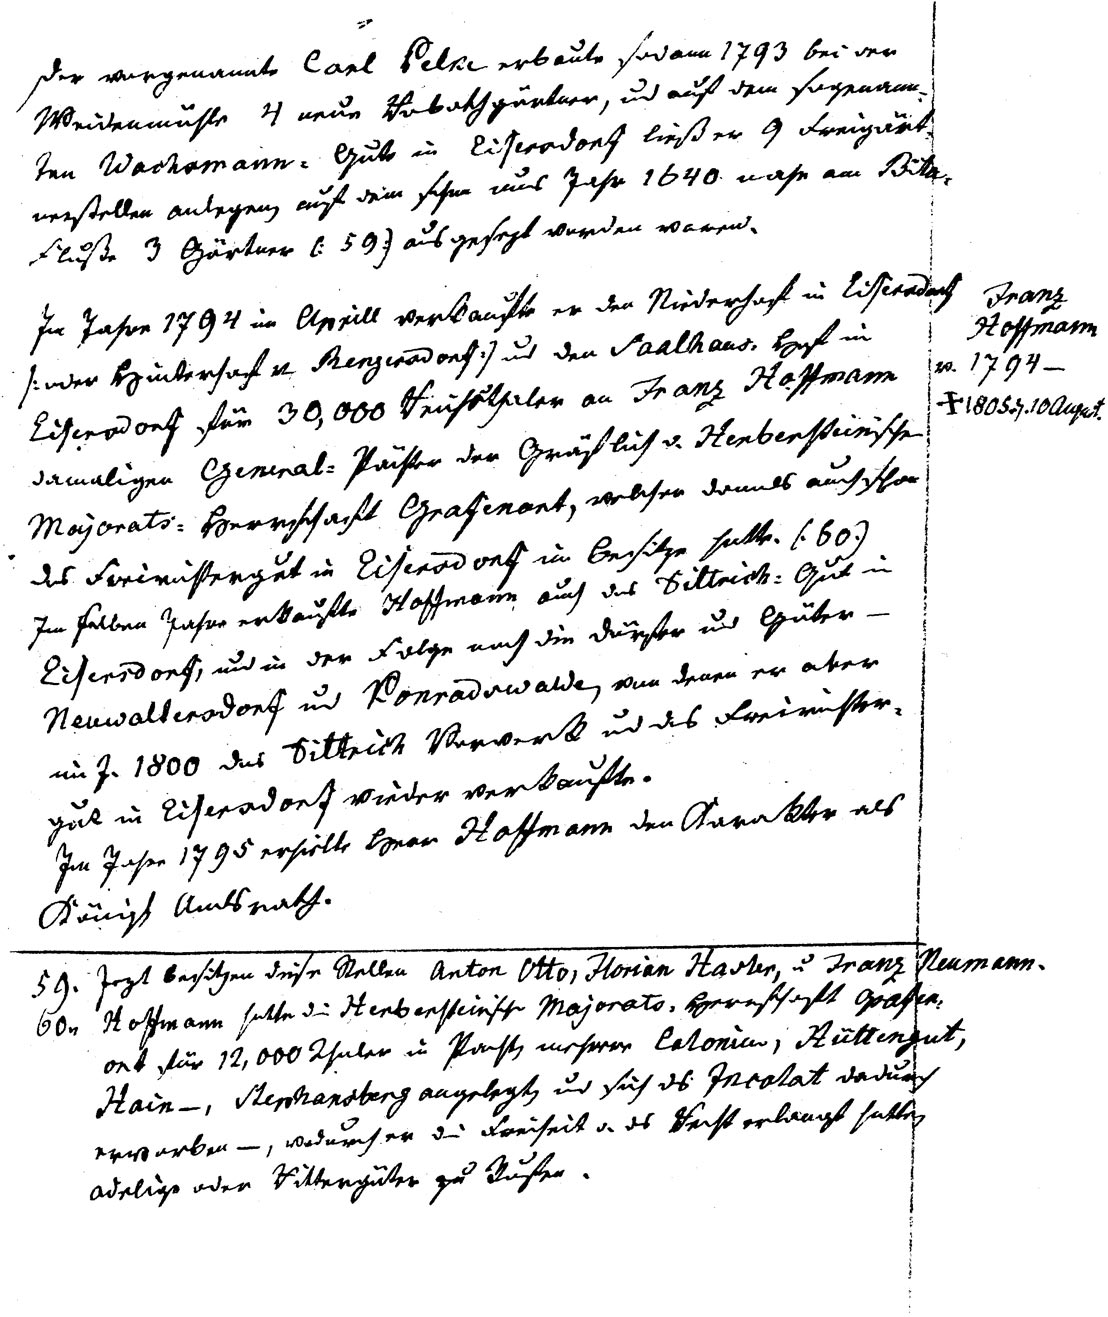 Der vorgenannte Carl Pelke erbaute sodann 1793 bei der
Weidenmühle 4 neue Robothgärtner, und auf dem sogenann-
ten Wachsmann-Gute in Eisersdorf ließ er 9 Freigärt-
nerstellen anlegen, auf dem schon ums Jahr 1640 nahe am Biela-
Fluße 3 Gärtner (: 59:) ausgesezt worden waren.
Im Jahre 1794 im Aprill verkaufte er den Niederhof in Eisersdorf
(:oder Hinterhof v. Renzersdorf:) und den Saalhaus-Hof in
Eisersdorf für 30,000 Reichsthaler an Franz Hoffmann
damaligen General-Pächter der Gräflich v. Herbersteinischen
Majorats-Herrschaft Grafenort, welcher damals auch schon
das Freirichtergut in Eisersdorf im Besitze hatte. (:60:)
Im selben Jahre erkaufte Hoffmann auch das Dittrich-Gut in
Eisersdorf, und in der Folge noch die Dörfer und Güter –
Neuwaltersdorf und Konradswalde, von denen er aber
im J. 1800 das Dittrich Vorwerk und das Freirichter-
gut in Eisersdorf wieder verkaufte.
Im Jahre 1795 erhielte Herr Hoffmann den Karakter als
Königl. Amtsrath.
Franz
Hoffmann
v. 1794 –
† 1805 d. 10 August.
59. Jezt besitzen diese Stellen Anton Otto, Florian Hasler, u Franz Neumann.
60. Hoffmann hatte die Herbersteinische Majorats-Herrschaft Grafen-
ort für 12,000 Thaler in Pacht, mehrere Colonien, Hüttengut,
Hain –, Stephansberg angelegt, und sich das Incolat dadurch
erworben –, wodurch er die Freiheit u. das Recht erlangt hatte,
adelige oder Rittergüter zu kaufen.